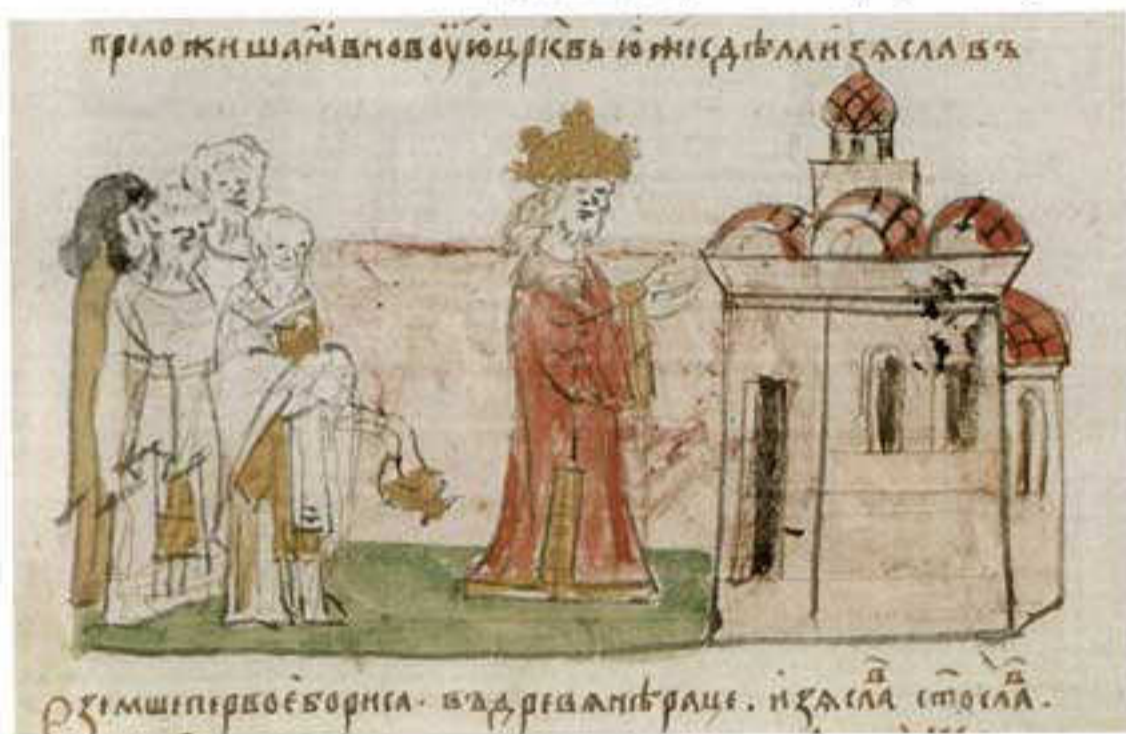 преложиша ꙗ в новоую црк҃вь юже сдѣла изѧславъ
взємше первоє бориса · въ древѧнѣ раце . изѧслаⷡ ст҃ослаⷡ .